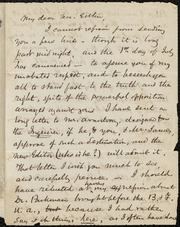 My dear Mr. Estlin,
I cannot refrain from sending
you a few lines – though it is long
past midnight, and the 1st day of July
has commenced – to assure you of my
unabated respect, and to beseech you
all to stand fast, to the truth, and the
right, spite of the powerful opposition
arrayed against you. I have sent a
long letter to Mr. Armstrong, designed for
the Inquirer, if he, & you, & Mr. James,
approve of such a destination, and the
new Editor (who is he?) will admit it.
That letter I wish you would to see,
and carefully peruse. – I should
have retracted my expressions about
Dr. Parkman brought before the B. & F.
U. A., but because I had
said the thing here, as I often have done